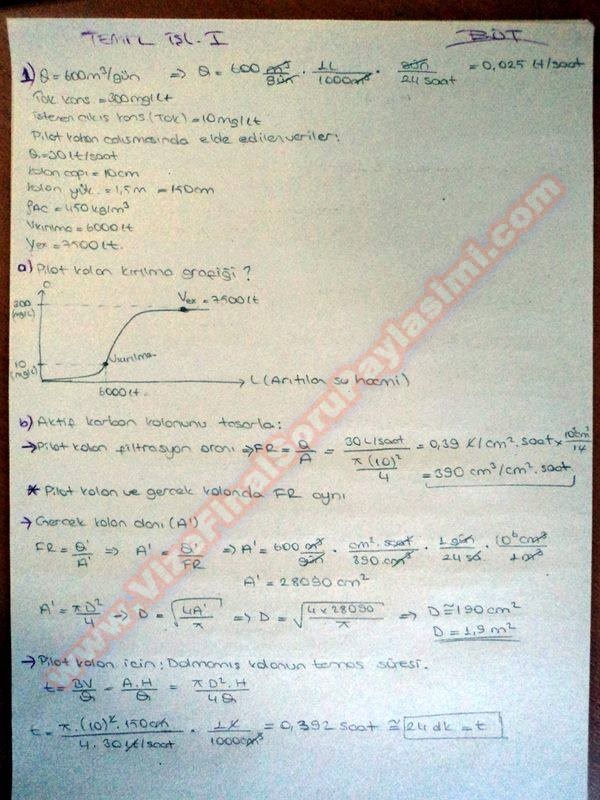 TEMEL İŞL-I BÜT
1) Q = 600 m³/gün => Q = 600 m³/gün · 1L/1000m³ · gün/24 saat = 0,025 Lt/saat
Tok kons = 300 mg/Lt
istenen çıkış kons (TOK) = 10 mg/Lt
Pilot kolon çalışmasında elde edilen veriler:
Q = 30 Lt/saat
kolon çapı = 10cm
kolon yük. = 1,5m = 150cm
ρAC = 450 kg/m³
Vkırılma = 6000 Lt
Vex = 7500 Lt.
a) Pilot kolon kırılma grafiği ?
C
300 (mg/L)
Vex = 7500 Lt
Vkırılma
10 (mg/L)
L (Arıtılan su hacmi)
6000 Lt.
b) Aktif karbon kolonunu tasarla:
→ Pilot kolon filtrasyon oranı => FR = Q/A = 30 L/saat / π(10)²/4 = 0,39 L/cm². saat × 10³cm³/1L
= 390 cm³/cm². saat
* Pilot kolon ve gerçek kolonda FR aynı
→ Gerçek kolon alanı (A')
FR = Q'/A' => A' = Q'/FR => A' = 600 m³/gün · cm². saat/390 cm³ · 1 gün/24 sa. · 10⁶ cm³/1 m³
A' = 28090 cm²
A' = πD²/4 => D = √4A'/π => D = √4×28090/π => D ≅ 190 cm²
D = 1,9 m²
→ Pilot kolon için: Dolmamış kolonun temas süresi.
t = BV/Q = A.H/Q = πD².H/4Q
t = π.(10)².150cm/4.30 L/saat · 1L/1000cm³ = 0,392 saat ≅ 24 dk = t
www.VizeFinalSoruPaylasimi.com